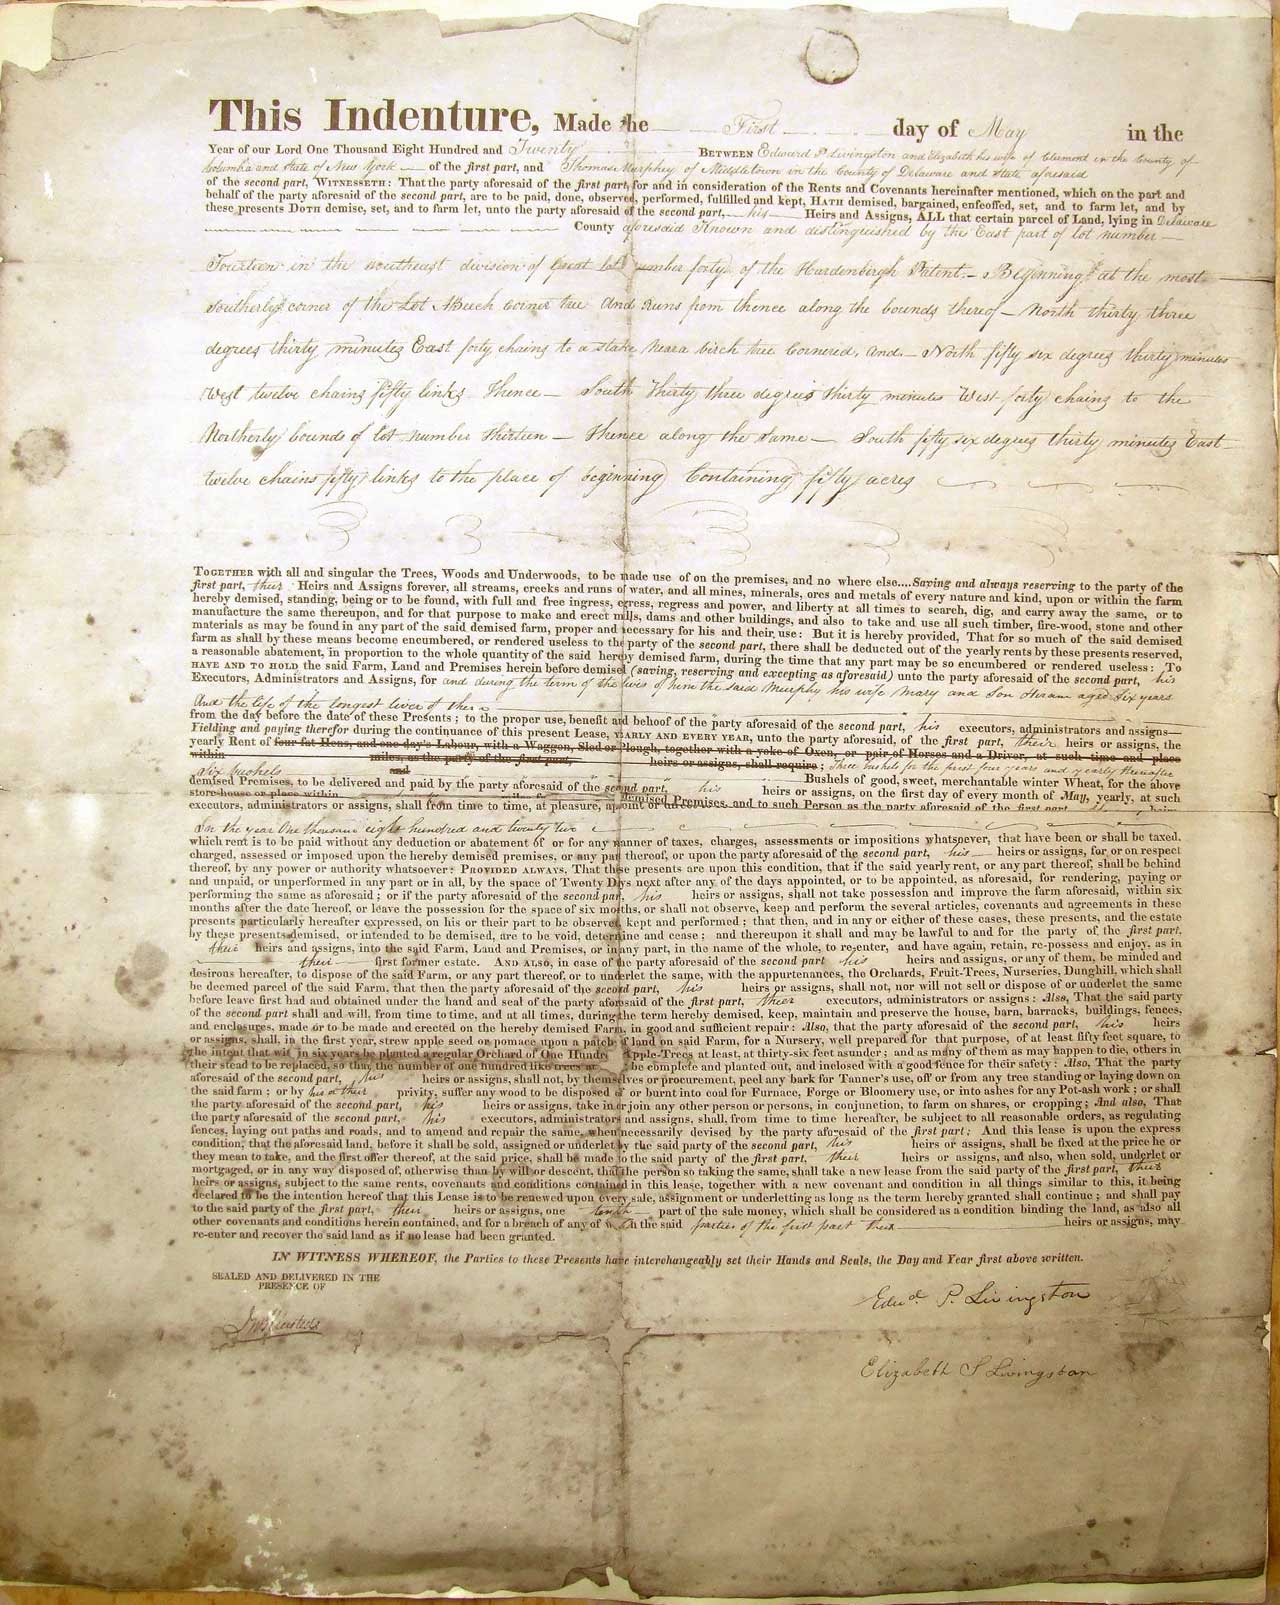 This Indenture, Made the First day of May in the
Year of our Lord One Thousand Eight Hundred and Twenty BETWEEN Edward P. Livingston and Elizabeth his wife of Clermont in the County of
Columbia and State of New York of the first part, and Thomas Murphey of Middletown in the County of Delaware and State aforesaid
of the second part, WITNESSETH: That the party aforesaid of the first part, for and in consideration of the Rents and Covenants hereinafter mentioned, which on the part and
behalf of the party aforesaid of the second part, are to be paid, done, observed, performed, fulfilled and kept, HATH demised, bargained, enfeoffed, set, and to farm let, and by
these presents DOTH demise, set, and to farm let, unto the party aforesaid of the second part, his Heirs and Assigns, ALL that certain parcel of Land, lying in Delaware
County aforesaid Known and distinguished by the East part of lot number
Fourteen in the southeast division of Great lot number forty of the Hardenbergh Patent – Beginning at the most
southerly corner of the Lot A Beech Corner tree And Runs from thence along the bounds thereof – North thirty three
degrees thirty minutes East forty chains to a stake near a birch tree Cornered, and – North fifty six degrees thirty minutes
West twelve chains fifty links Thence – South Thirty three degrees thirty minutes West forty chains to the
Northerly bounds of lot number Thirteen – Thence along the same – South fifty six degrees thirty minutes East
twelve chains fifty links to the place of beginning Containing fifty acres
TOGETHER with all and singular the Trees, Woods and Underwoods, to be made use of on the premises, and no where else....Saving and always reserving to the party of the
first part, their Heirs and Assigns forever, all streams, creeks and runs of water, and all mines, minerals, ores and metals of every nature and kind, upon or within the farm
hereby demised, standing, being or to be found, with full and free ingress, egress, regress and power, and liberty at all times to search, dig, and carry away the same, or to
manufacture the same thereupon, and for that purpose to make and erect mills, dams and other buildings, and also to take and use all such timber, fire-wood, stone and other
materials as may be found in any part of the said demised farm, proper and necessary for his and their use: But it is hereby provided, That for so much of the said demised
farm as shall by these means become encumbered, or rendered useless to the party of the second part, there shall be deducted out of the yearly rents by these presents reserved,
a reasonable abatement, in proportion to the whole quantity of the said hereby demised farm, during the time that any part may be so encumbered or rendered useless: To
HAVE AND TO HOLD the said Farm, Land and Premises herein before demised (saving, reserving and excepting as aforesaid) unto the party aforesaid of the second part, his
Executors, Administrators and Assigns, for and during the term of the lives of him the said Murphy his wife Mary and Son Hiram aged Six years
And the life of the longest liver of them
from the day before the date of these Presents; to the proper use, benefit and behoof of the party aforesaid of the second part, his executors, administrators and assigns—
Yielding and paying therefor during the continuance of this present Lease, YEARLY AND EVERY YEAR, unto the party aforesaid, of the first part, their heirs or assigns, the
yearly Rent of four fat Hens, and one day's Labour, with a Waggon, Sled or Plough, together with a yoke of Oxen, or pair of Horses and a Driver, at such time and place
within miles, as the party of the first part, heirs or assigns, shall require; Three bushels for the first four years and yearly thereafter
Six bushels and Bushels of good, sweet, merchantable winter Wheat, for the above
demised Premises, to be delivered and paid by the party aforesaid of the second part, his heirs or assigns, on the first day of every month of May, yearly, at such
store-house or place within miles demised Premises, and to such Person as the party aforesaid of the first part heirs
executors, administrators or assigns, shall from time to time, at pleasure, appoint or
In the year One thousand eight hundred and twenty two
which rent is to be paid without any deduction or abatement of or for any manner of taxes, charges, assessments or impositions whatsoever, that have been or shall be taxed,
charged, assessed or imposed upon the hereby demised premises, or any part thereof, or upon the party aforesaid of the second part, his heirs or assigns, for or on respect
thereof, by any power or authority whatsoever: PROVIDED ALWAYS, That these presents are upon this condition, that if the said yearly rent, or any part thereof, shall be behind
and unpaid, or unperformed in any part or in all, by the space of Twenty Days next after any of the days appointed, or to be appointed, as aforesaid, for rendering, paying or
performing the same as aforesaid; or if the party aforesaid of the second part, his heirs or assigns, shall not take possession and improve the farm aforesaid, within six
months after the date hereof, or leave the possession for the space of six months, or shall not observe, keep and perform the several articles, covenants and agreements in these
presents particularly hereafter expressed, on his or their part to be observed, kept and performed; that then, and in any or either of these cases, these presents, and the estate
by these presents demised, or intended to be demised, are to be void, determine and cease: and thereupon it shall and may be lawful to and for the party of the first part,
their heirs and assigns, into the said Farm, Land and Premises, or in any part, in the name of the whole, to re-enter, and have again, retain, re-possess and enjoy, as in
their first former estate. AND ALSO, in case of the party aforesaid of the second part his heirs and assigns, or any of them, be minded and
desirous hereafter, to dispose of the said Farm, or any part thereof, or to underlet the same, with the appurtenances, the Orchards, Fruit-Trees, Nurseries, Dunghill, which shall
be deemed parcel of the said Farm, that then the party aforesaid of the second part, his heirs or assigns, shall not, nor will not sell or dispose of or underlet the same
before leave first had and obtained under the hand and seal of the party aforesaid of the first part, their executors, administrators or assigns: Also, That the said party
of the second part shall and will, from time to time, and at all times, during the term hereby demised, keep, maintain and preserve the house, barn, barracks, buildings, fences,
and enclosures, made or to be made and erected on the hereby demised Farm, in good and sufficient repair: Also, that the party aforesaid of the second part, his heirs
or assigns, shall, in the first year, strew apple seed or pomace upon a patch of land on said Farm, for a Nursery, well prepared for that purpose, of at least fifty feet square, to
the intent that wit in six years be planted a regular Orchard of One Hundre Apple-Trees at least, at thirty-six feet asunder; and as many of them as may happen to die, others in
their stead to be replaced, so that the number of one hundred like trees at be complete and planted out, and inclosed with a good fence for their safety: Also, That the party
aforesaid of the second part, his heirs or assigns, shall not, by themselves or procurement, peel any bark for Tanner's use, off or from any tree standing or laying down on
the said farm; or by his or their privity, suffer any wood to be disposed of or burnt into coal for Furnace, Forge or Bloomery use, or into ashes for any Pot-ash work: or shall
the party aforesaid of the second part, his heirs or assigns, take in or join any other person or persons, in conjunction, to farm on shares, or cropping; And also, That
the party aforesaid of the second part, his executors, administrators and assigns, shall, from time to time hereafter, be subject to all reasonable orders, as regulating
fences, laying out paths and roads, and to amend and repair the same, when necessarily devised by the party aforesaid of the first part; And this lease is upon the express
condition, that the aforesaid land, before it shall be sold, assigned or underlet by the said party of the second part, his heirs or assigns, shall be fixed at the price he or
they mean to take, and the first offer thereof, at the said price, shall be made to the said party of the first part, their heirs or assigns, and also, when sold, underlet or
mortgaged, or in any way disposed of, otherwise than by will or descent, that the person so taking the same, shall take a new lease from the said party of the first part, their
heirs or assigns, subject to the same rents, covenants and conditions contained in this lease, together with a new covenant and condition in all things similar to this, it being
declared to be the intention hereof that this Lease is to be renewed upon every sale, assignment or underletting as long as the term hereby granted shall continue; and shall pay
to the said party of the first part, their heirs or assigns, one tenth part of the sale money, which shall be considered as a condition binding the land, as also all
other covenants and conditions herein contained, and for a breach of any of the said parties of the first part their heirs or assigns, may
re-enter and recover the said land as if no lease had been granted.
IN WITNESS WHEREOF, the Parties to these Presents have interchangeably set their Hands and Seals, the Day and Year first above written.
SEALED AND DELIVERED IN THE
PRESENCE OF
Edwd. P. Livingston
Elizabeth S Livingston